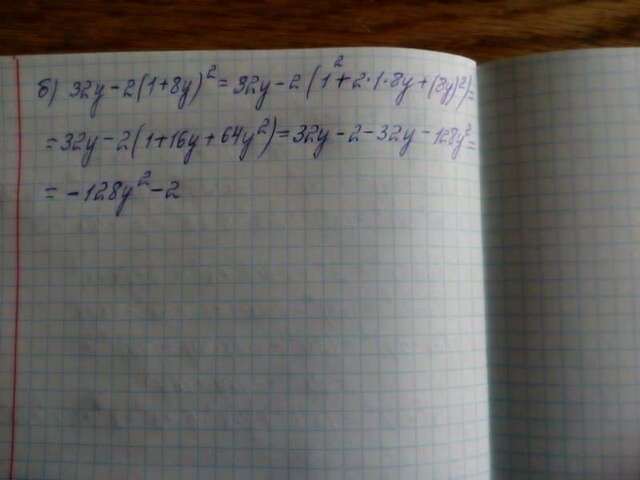 б) 32y-2(1+8y)²=32y-2(1²+2·1·8y+(8y)²)=
=32y-2(1+16y+64y²)=32y-2-32y-128y²=
=-128y²-2